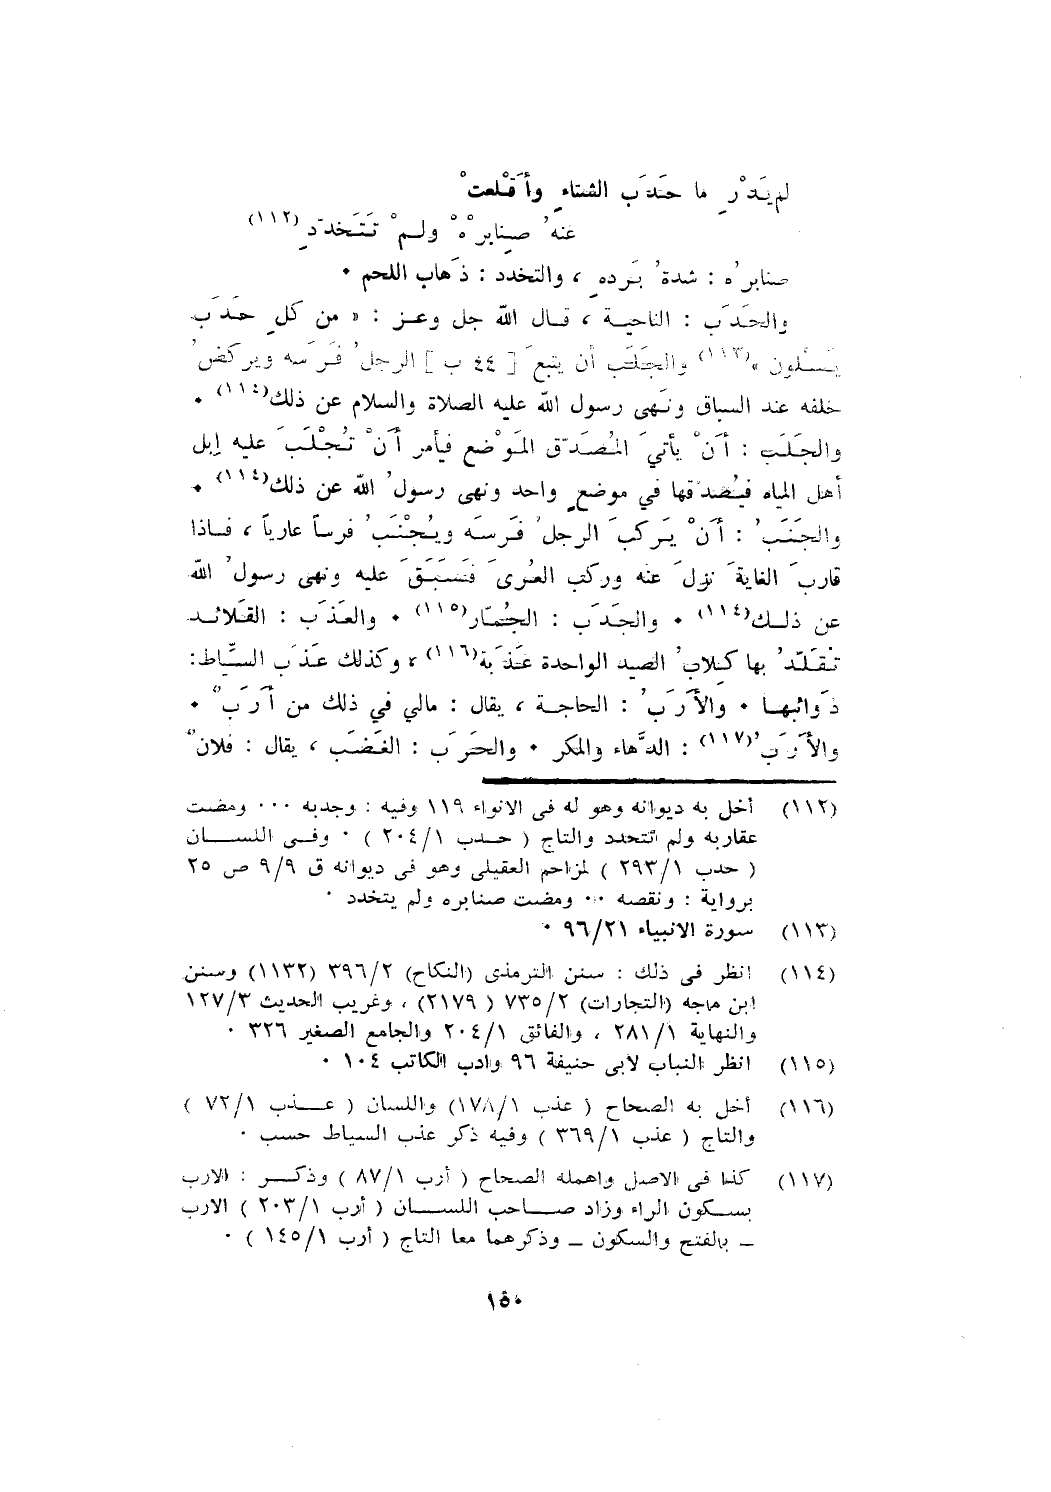 لم يَدْرِ ما حَدَبَ الشتاءِ وأَقْلَعَتْ
عنه ُ صِنابرُهْ ولمْ تَتَخدّدِ (١١٢)
صنابرُه : شدةُ بَردهِ ، والتخدد : ذَهاب اللحم .
والحَدَب : الناحيـة ، قـال الله جل وعـز : « من كلِ حَدَب
يَنسلون »(١١٣) والجَلَب أن يتبعَ [ ٤٤ ب ] الرجلُ فَرَسه ويركضُ
خلفه عند السباق ونَهى رسول الله عليه الصلاة والسلام عن ذلك(١١٤) .
والجَلَبِ : أَنْ يأتيَ المُصَدّق المَوْضع فيأمر أَنْ تُجْلَبَ عليه إبل
أهل المياه فيُصَدّقها في موضعٍ واحد ونهى رسولُ الله عن ذلك(١١٤) .
والجَنَبُ : أَنْ يَركبَ الرجلُ فَرسَه ويُجْنَبُ فرساً عارياً ، فـاذا
قاربَ الغايةَ نزلَ عنه وركب العُرىَ فَسَبَقَ عليه ونهى رسولُ الله
عن ذلـك(١١٤) . والجَذَب : الجُمّار(١١٥) . والعَذَب : القَلائـد
تُقَلّدُ بها كِلابُ الصيد الواحدة عَذَبة(١١٦) ، وكذلك عَذَب السِّياط:
ذَوائبهـا . والأَرَبُ : الحاجـة ، يقال : مالي في ذلك من أَرَبٍ .
والأَرَبُ(١١٧) : الدَّهاء والمكر . والحَرَب : الغَضَب ، يقال : فلانٌ
(١١٢) أخل به ديوانه وهو له في الانواء ١١٩ وفيه : وجدبه ... ومضت
عقاربه ولم تتحدد والتاج ( حـدب ٢٠٤/١ ) . وفـي اللسـان
( حدب ٢٩٣/١ ) لمزاحم العقيلي وهو في ديوانه ق ٩/٩ ص ٢٥
برواية : ونقصه ... ومضت صنابره ولم يتخدد .
(١١٣) سورة الانبياء ٩٦/٢١ .
(١١٤) انظر في ذلك : سنن الترمذى (النكاح) ٣٩٦/٢ (١١٣٢) وسنن
ابن ماجه (التجارات) ٧٣٥/٢ ( ٢١٧٩) ، وغريب الحديث ١٢٧/٣
والنهاية ٢٨١/١ ، والفائق ٢٠٤/١ والجامع الصغير ٣٢٦ .
(١١٥) انظر النبات لابي حنيفة ٩٦ وادب الكاتب ١٠٤ .
(١١٦) أخل به الصحاح ( عذب ١٧٨/١) واللسان ( عـذب ٧٢/١ )
والتاج ( عذب ٣٦٩/١ ) وفيه ذكر عذب السياط حسب .
(١١٧) كذا في الاصل واهمله الصحاح ( أرب ٨٧/١ ) وذكـر : الارب
بسـكون الراء وزاد صـاحب اللسـان ( أرب ٢٠٣/١ ) الارب
ـ بالفتح والسكون ـ وذكرهما معا التاج ( أرب ١٤٥/١ ) .
١٥٠